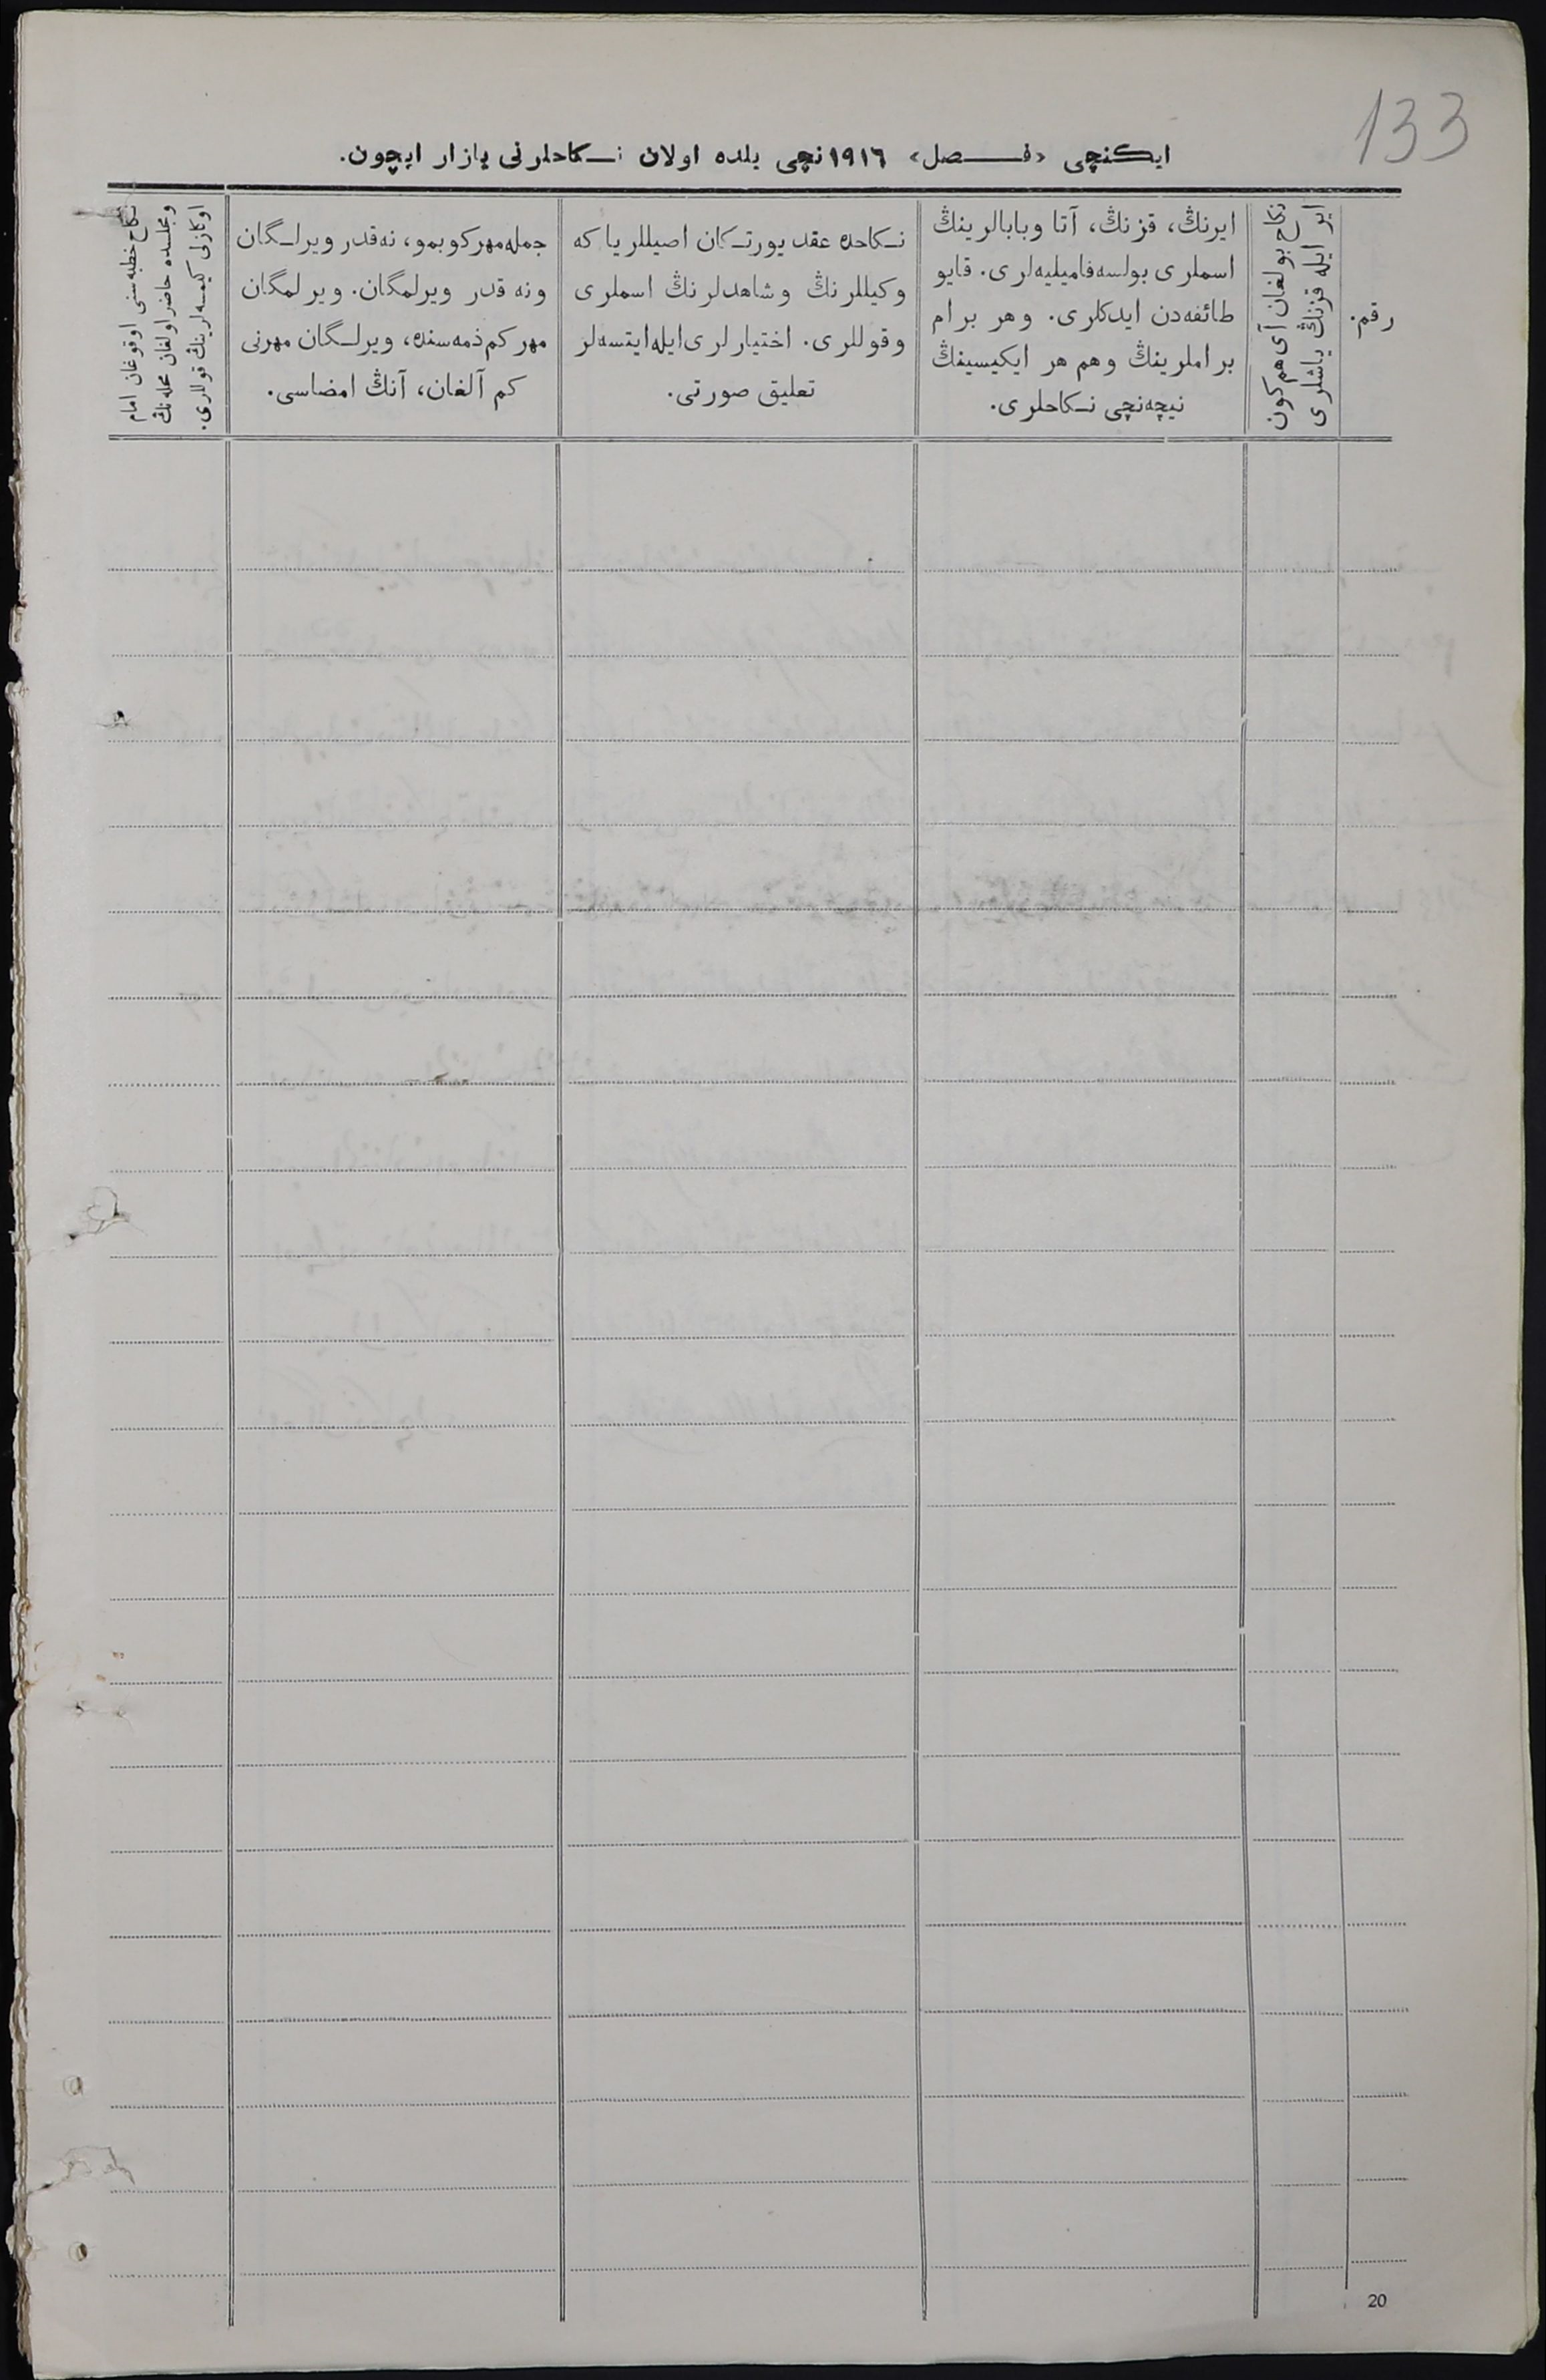 133
ایکنچی «فصل» ١٩١٦نچی یلده اولان نکاحلرنی یازار ایچون.
رقم.
نکاح بولغان آی هم کون
ایر ایله قزنڭ یاشلری
ایرنڭ، قزنڭ، آتا وبابالرینڭ
اسملری بولسه فامیلیه‌لری. قایو
طائفه‌دن ایدکلری. وهر برام
براملرینڭ وهم هر ایکیسینڭ
نیچه‌نچی نکاحلری.
نکاحده عقد یورتکان اصیللر یا که
وکیللرنڭ وشاهدلرنڭ اسملری
وقوللری. اختیارلری ایله ایتسه‌لر
تعلیق صورتی.
جمله مهر کوبمو، نه قدر ویرلگان
ونه قدر ویرلمگان. ویرلمگان
مهر کم ذمه‌سنده، ویرلگان مهرنی
کم آلغان، آنڭ امضاسی.
نکاح خطبه‌سنی اوقوغان امام
ومجلسده حاضر اولغان محله‌نڭ
اوکازلی کیمسه‌لرینڭ قوللری.
20